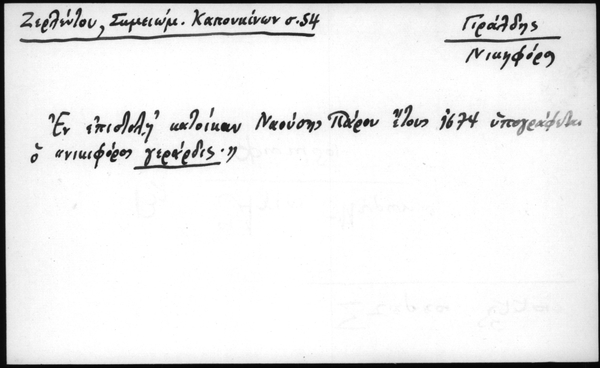 Ζερλέντου, Σημειώμ. Καπουκίνων σ.54
Γιράλδης
Νικηφόρος
Ἐν ἐπιστολῇ κατοίκων Ναούσης Πάρου ἔτους 1674 ὑπογράφεται
ὁ "νικιφόρος γεράρδις."